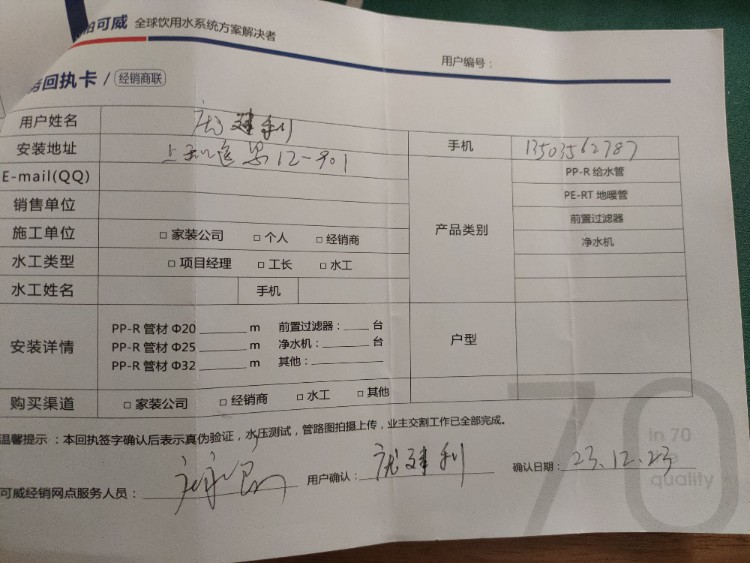 可威 全球饮用水系统方案解决者
用户编号：
回执卡 / 经销商联
用户姓名 建利
手机 13503562787
安装地址 12-901
E-mail(QQ)
销售单位
施工单位 □ 家装公司 □ 个人 □ 经销商
水工类型 □ 项目经理 □ 工长 □ 水工
水工姓名 手机
产品类别
PP-R 给水管
PE-RT 地暖管
前置过滤器
净水机
安装详情
PP-R 管材 Φ20 ______ m 前置过滤器：____ 台
PP-R 管材 Φ25 ______ m 净水机：____ 台
PP-R 管材 Φ32 ______ m 其他：______
户型
购买渠道 □ 家装公司 □ 经销商 □ 水工 □ 其他
温馨提示：本回执签字确认后表示真伪验证，水压测试，管路图拍摄上传，业主交割工作已全部完成。
可威经销网点服务人员：
用户确认： 建利
确认日期： 23.12.23
70
In 70
quality